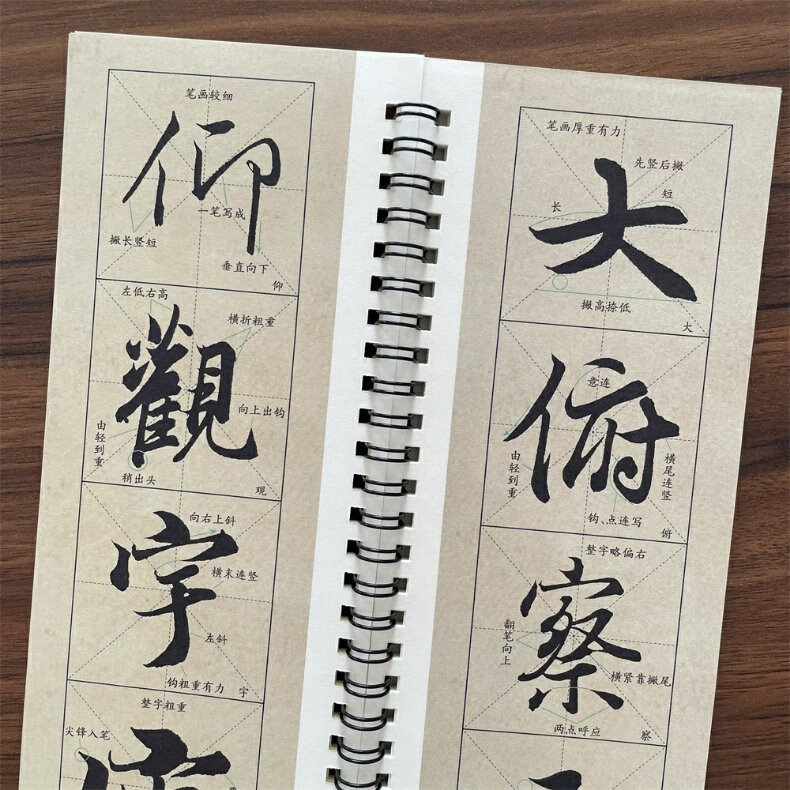 笔画较细
仰
一笔写成
撇长竖短
垂直向下
仰
左低右高
横折粗重
觀
向上出钩
由轻到重
稍出头
观
向右上斜
宇
横末连竖
左斜
钩粗重有力
宇
整字粗重
尖锋入笔
笔画厚重有力
先竖后撇
短
长
大
撇高捺低
大
意连
俯
由轻到重
横尾连竖
钩、点连写
俯
整字略偏右
察
翻笔向上
横紧靠撇尾
两点呼应
察